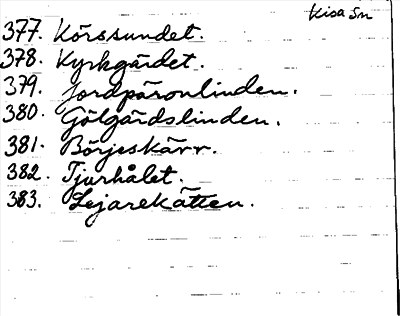 Kisa Sn
377. Körssundet.
378. Kyrkgärdet.
379. Jordpäronlinden.
380. Gölgärdslinden.
381. Börjeskärr.
382. Tjurhålet.
383. Lejarekätten.